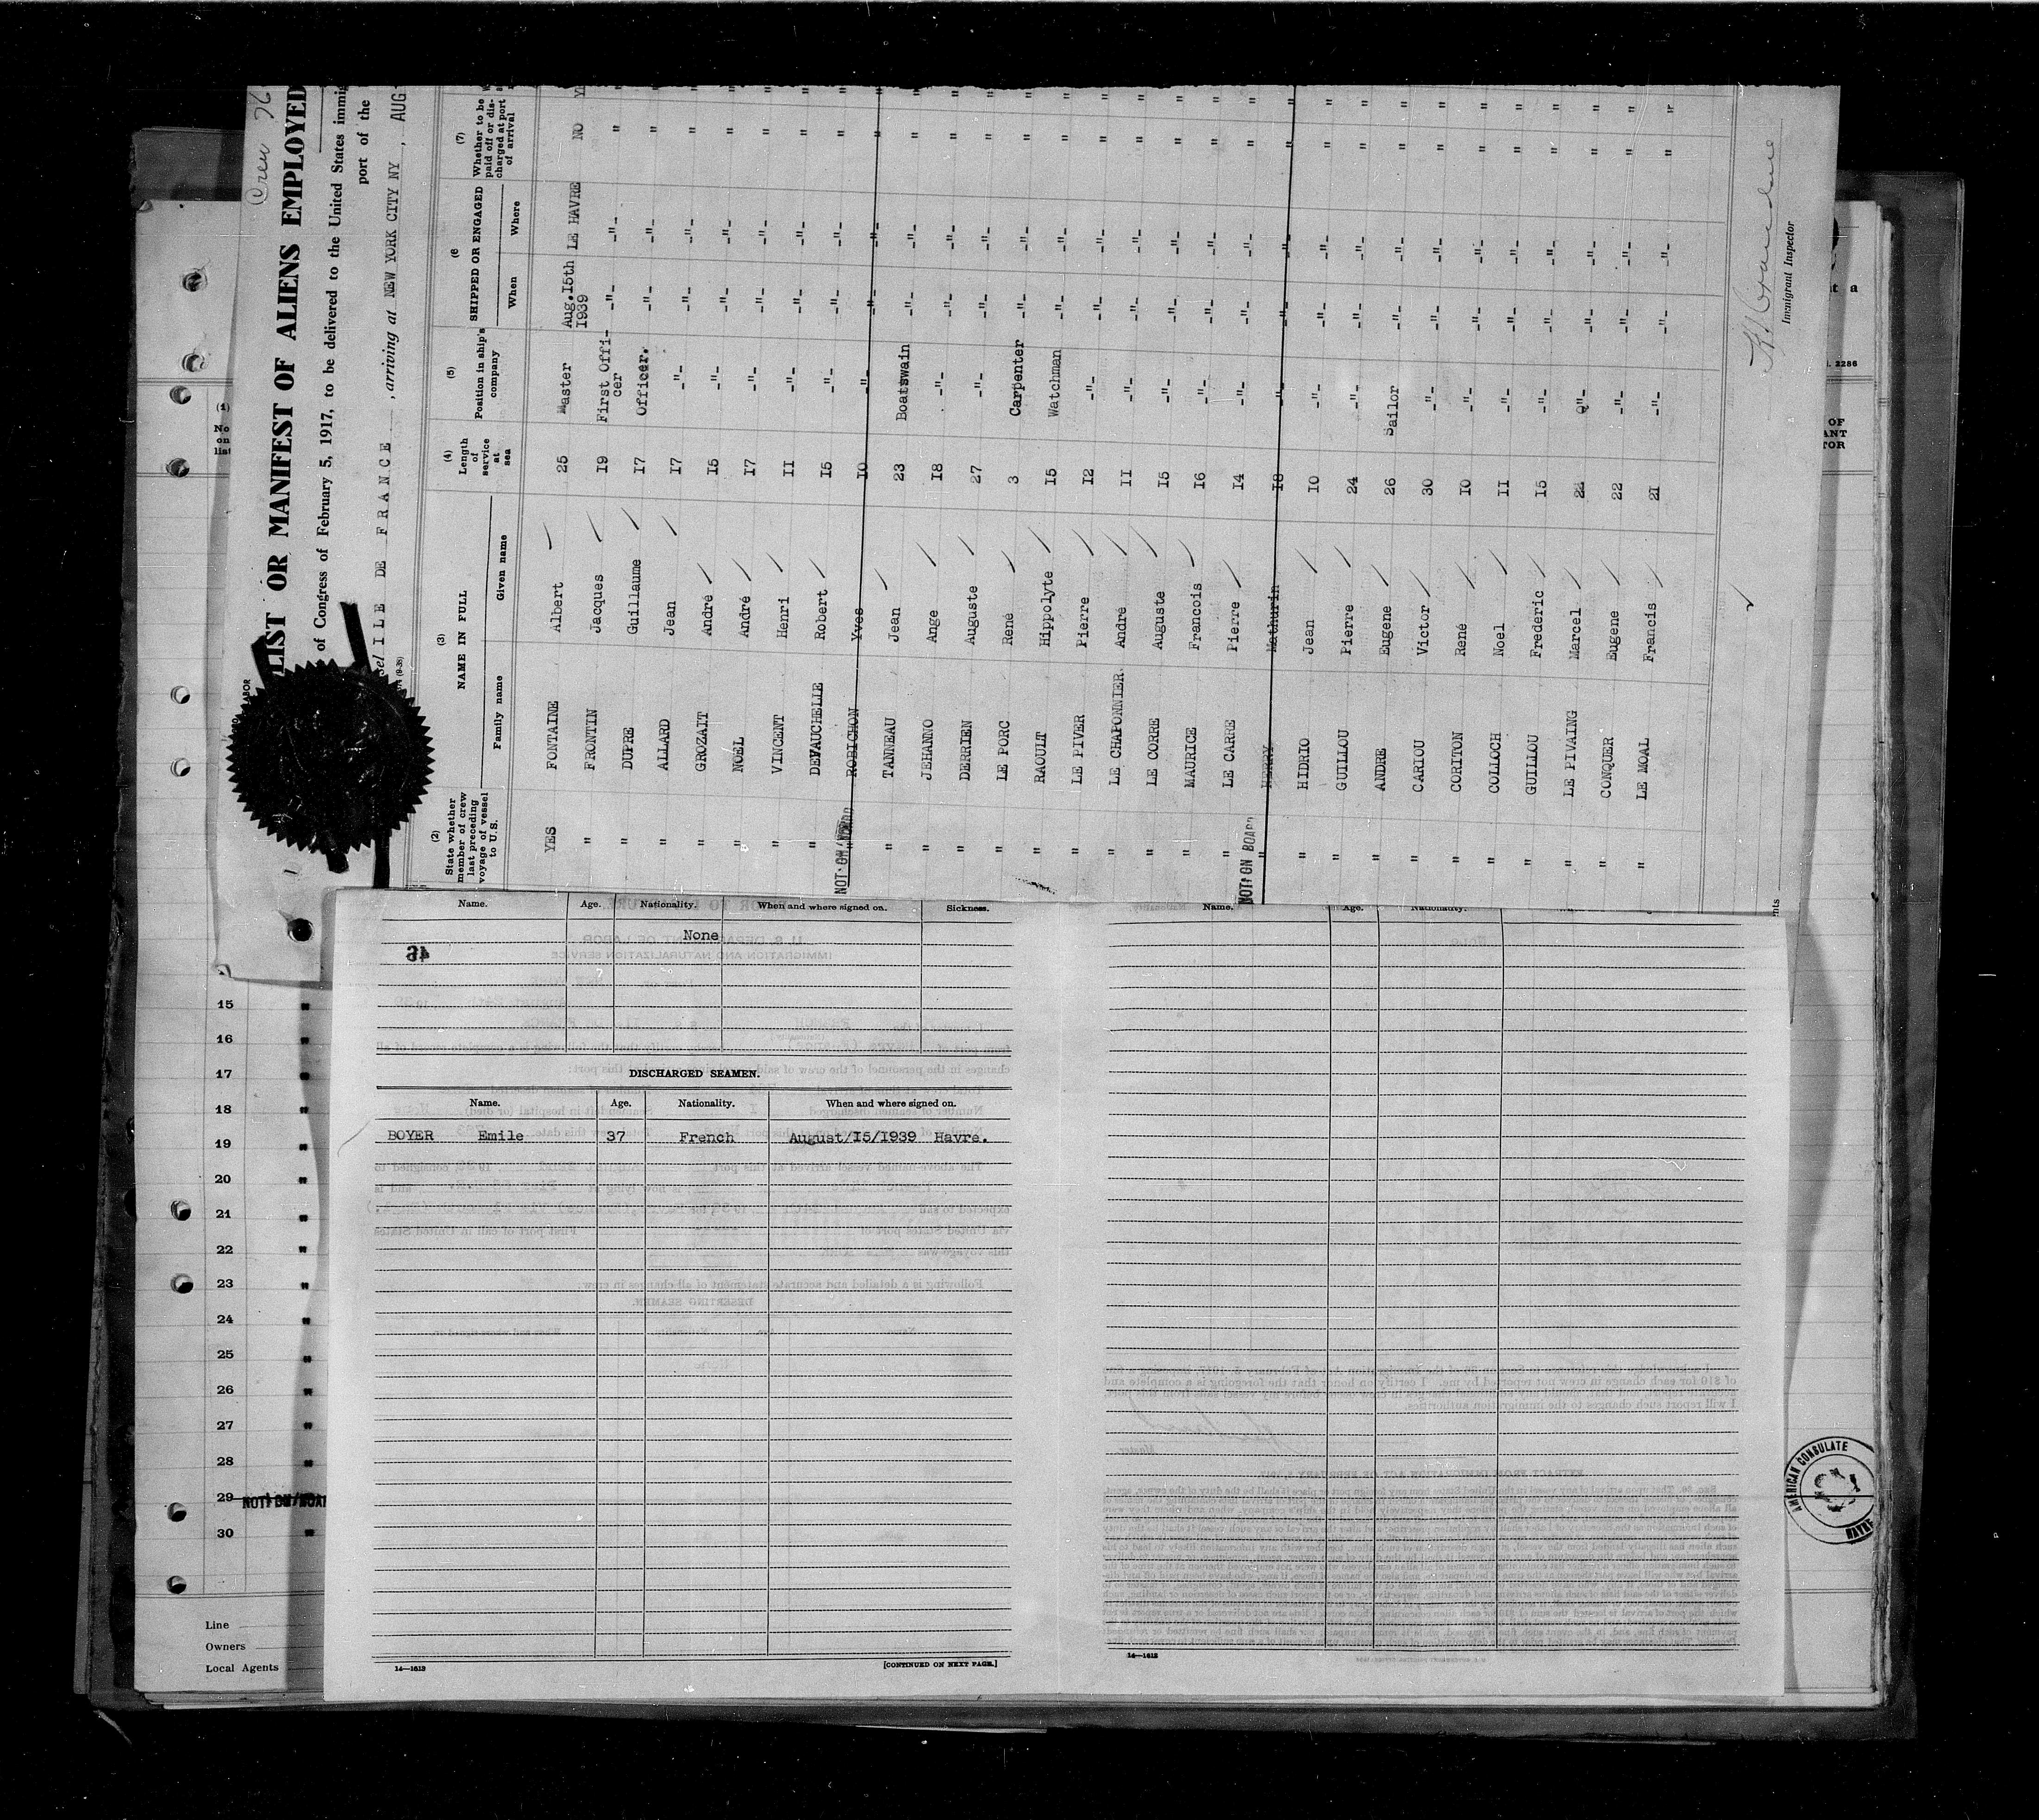 Crew 76
LIST OR MANIFEST OF ALIENS EMPLOYED
of Congress of February 5, 1917, to be delivered to the United States immig
port of the
sel ILE DE FRANCE , arriving at NEW YORK CITY NY , AUG
(2) State whether member of crew last preceding voyage of vessel to U.S. (3) NAME IN FULL Family name Given name (4) Length of service at sea (5) Position in ship's company (6 SHIPPED OR ENGAGED When Where (7) Whether to be paid off or discharged at port of arrival
YES FONTAINE Albert 25 Master Aug.15th 1939 LE HAVRE NO
" FRONTIN Jacques 19 First Officer -"- -"- " "
" DUPRE Guillaume 17 Officer. -"- -"- " "
" ALLARD Jean 17 -"- -"- -"- " "
" GROZAIT André 15 -"- -"- -"- " "
" NOEL André 17 -"- -"- -"- " "
" VINCENT Henri 11 -"- -"- -"- " "
" DEVAUCHELLE Robert 15 -"- -"- -"- " "
NOT ON BOARD ROBICHON Yves 10 -"- -"- -"- " "
" TANNEAU Jean 23 Boatswain -"- -"- " "
" JEHANNO Ange 18 -"- -"- -"- " "
" DERRIEN Auguste 27 -"- -"- -"- " "
" LE PORC René 3 Carpenter -"- -"- " "
" RAOULT Hippolyte 15 Watchman -"- -"- " "
" LE PIVER Pierre 12 -"- -"- -"- " "
" LE CHAPONNIER André 11 -"- -"- -"- " "
" LE CORRE Auguste 15 -"- -"- -"- " "
" MAURICE Francois 16 -"- -"- -"- " "
" LE CARRE Pierre 14 -"- -"- -"- " "
NOT ON BOARD " HENRY Mathurin 18 -"- -"- -"- " "
" HIDRIO Jean 10 -"- -"- -"- " "
" GUILLOU Pierre 24 -"- -"- -"- " "
" ANDRE Eugene 26 Sailor -"- -"- " "
" CARIOU Victor 30 -"- -"- -"- " "
" CORITON René 10 -"- -"- -"- " "
" COLLOCH Noel 11 -"- -"- -"- " "
" GUILLOU Frederic 15 -"- -"- -"- " "
" LE PIVAING Marcel 22 -"- -"- -"- " "
" CONQUER Eugene 22 -"- -"- -"- " "
" LE MOAL Francis 21 -"- -"- -"- " "
Immigrant Inspector
Name. Age. Nationality. When and where signed on. Sickness.
None
46
DISCHARGED SEAMEN.
Name. Age. Nationality. When and where signed on.
BOYER Emile 37 French August/15/1939 Havre.
14—1613 [CONTINUED ON NEXT PAGE.]
Name. Age. Nationality.
14—1613
(1)
No
on
list
15 "
16 "
17 "
18 "
19 "
20 "
21 "
22 "
23 "
24 "
25 "
26 "
27 "
28 "
29 NOT ON BOAR
30 "
Line
Owners
Local Agents
at a
2286
OF
ANT
TOR
AMERICAN CONSULATE
HAVRE